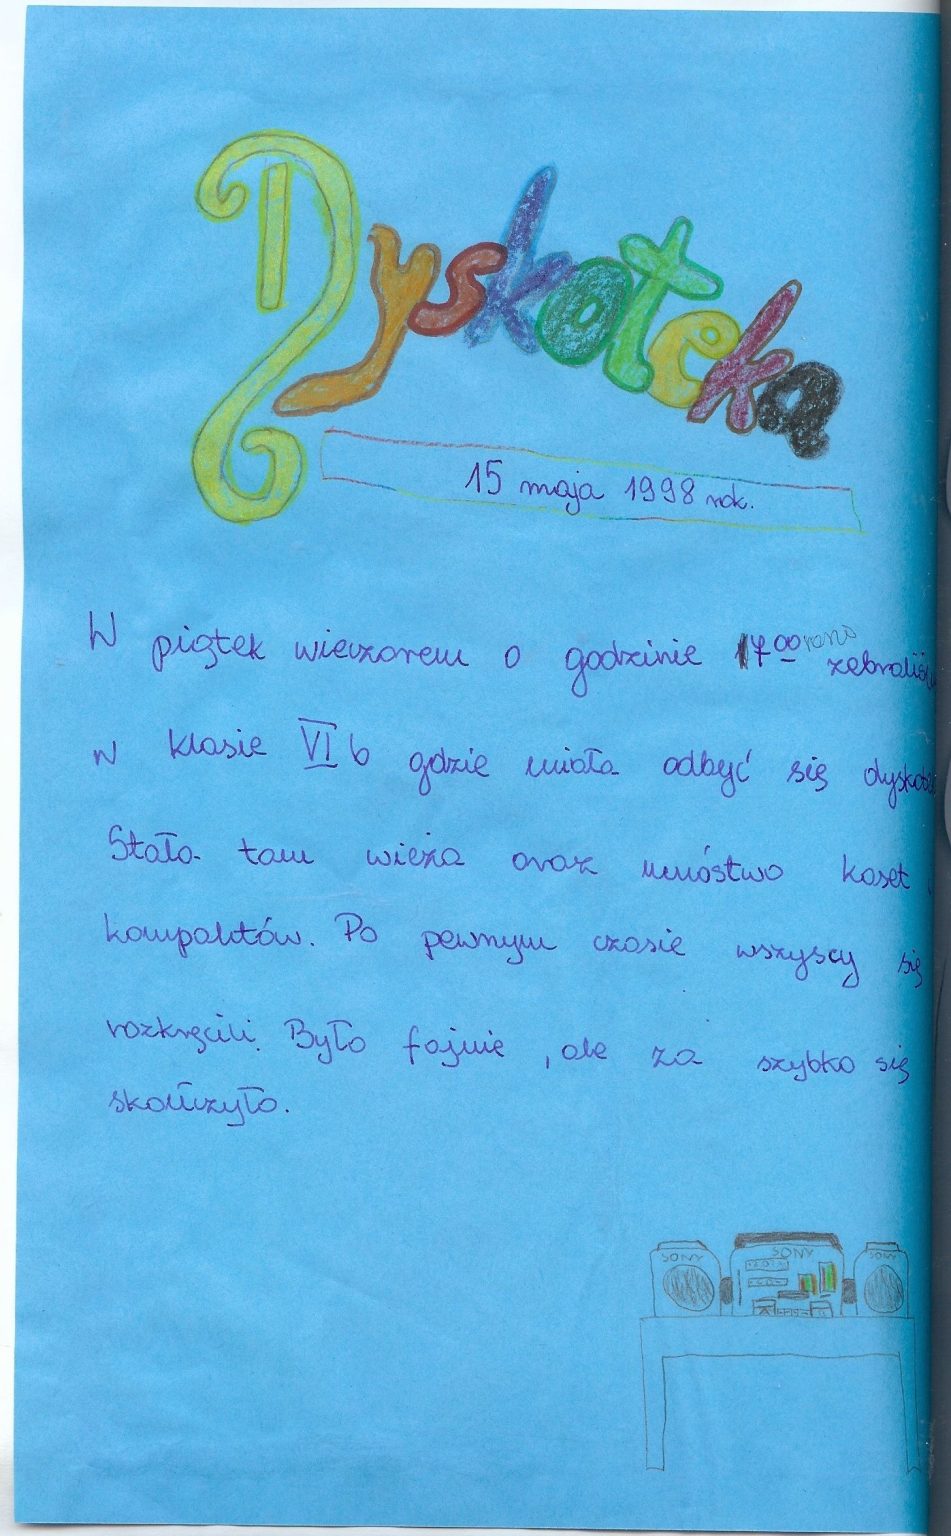 Dyskoteka
15 maja 1998 rok.
W piątek wieczorem o godzinie 17⁰⁰ rano zebraliśm
w klasie VI b gdzie miała odbyć się dyskote
Stała tam wieża oraz mnóstwo kaset,
kompaktów. Po pewnym czasie wszyscy się
rozkręcili. Było fajnie, ale za szybko się
skończyło.
SONY SONY SONY